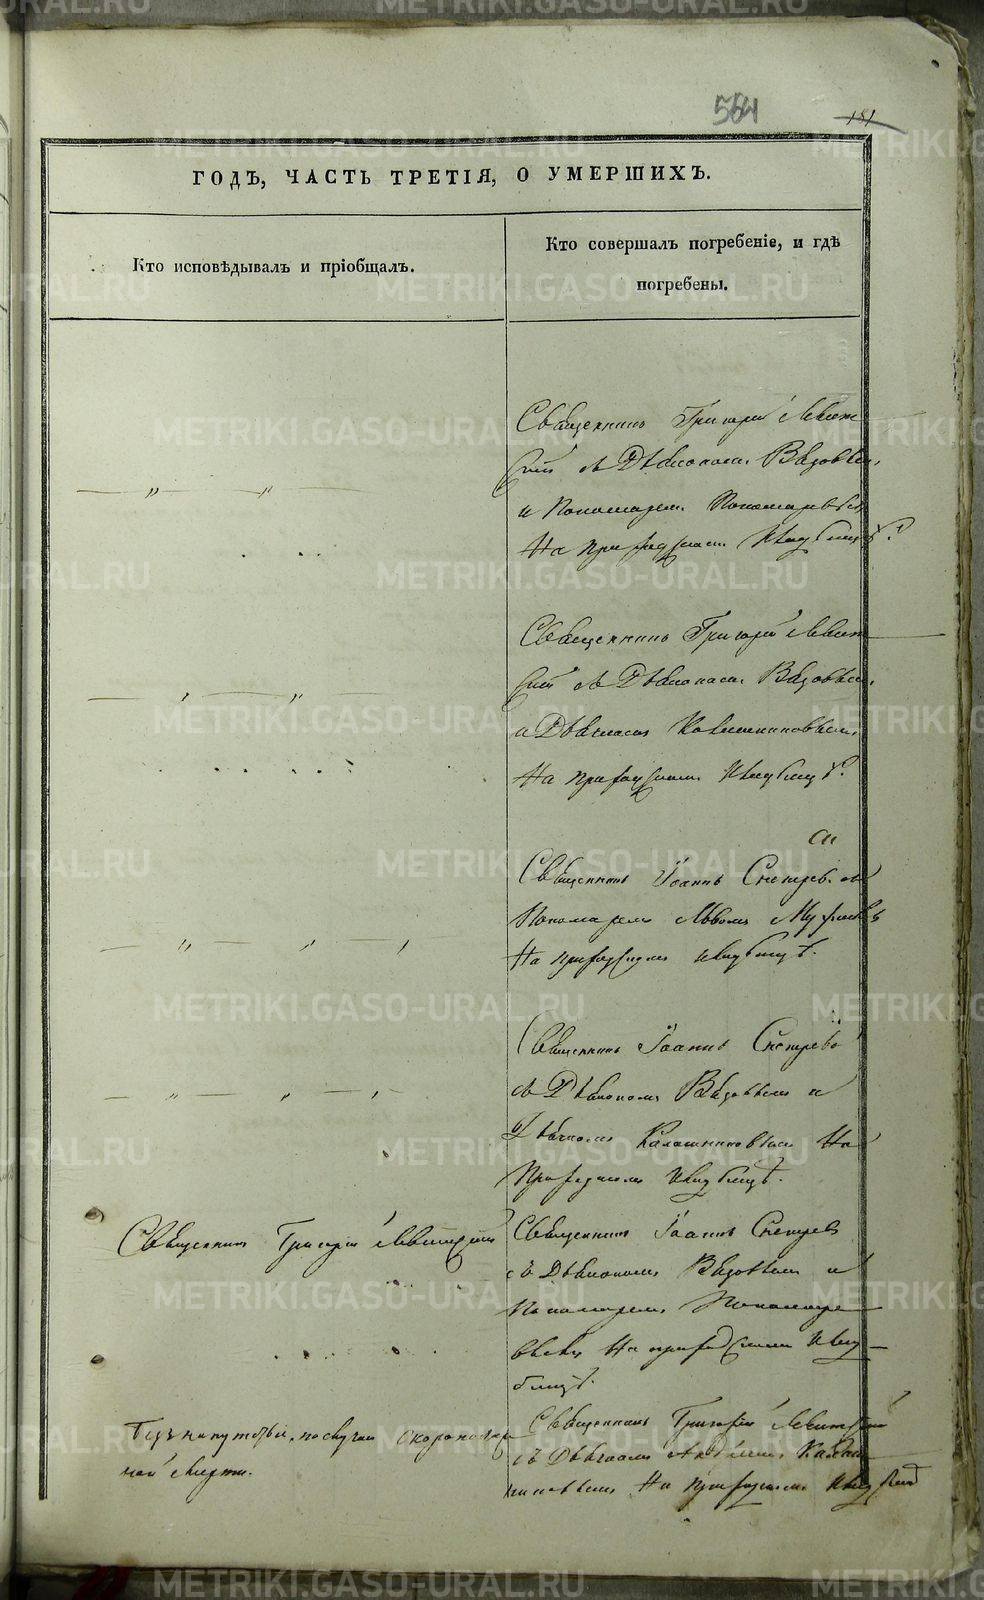 564
151
ГОДЪ, ЧАСТЬ ТРЕТІЯ, О УМЕРШИХЪ.
Кто исповѣдывалъ и пріобщалъ.
Кто совершалъ погребеніе, и гдѣ
погребены.
Священникъ Григорій Левит
скій съ Діакономъ
и Пономаремъ Пономаревымъ
На приходскомъ кладбищѣ.
Священникъ Григорій Левит
скій съ Діакономъ
и Дьячкомъ Калашниковымъ
На приходскомъ кладбищѣ.
Священникъ Іоаннъ съ
Пономаремъ Львомъ
На приходскомъ кладбищѣ.
Священникъ Іоаннъ
съ Діакономъ и
Дьячкомъ Калашниковымъ На
Приходскомъ кладбищѣ.
Священникъ Григорій Левитскій
Священникъ Іоаннъ
съ Діакономъ и
Пономаремъ Пономаре
вымъ На приходскомъ клад
бищѣ.
Безъ напутствія, по случаю скоропостиж
ной смерти.
Священникъ Григорій Левитскій
съ Дьячкомъ Калаш
никовымъ На приходскомъ кладбищѣ
METRIKI.GASO-URAL.RU